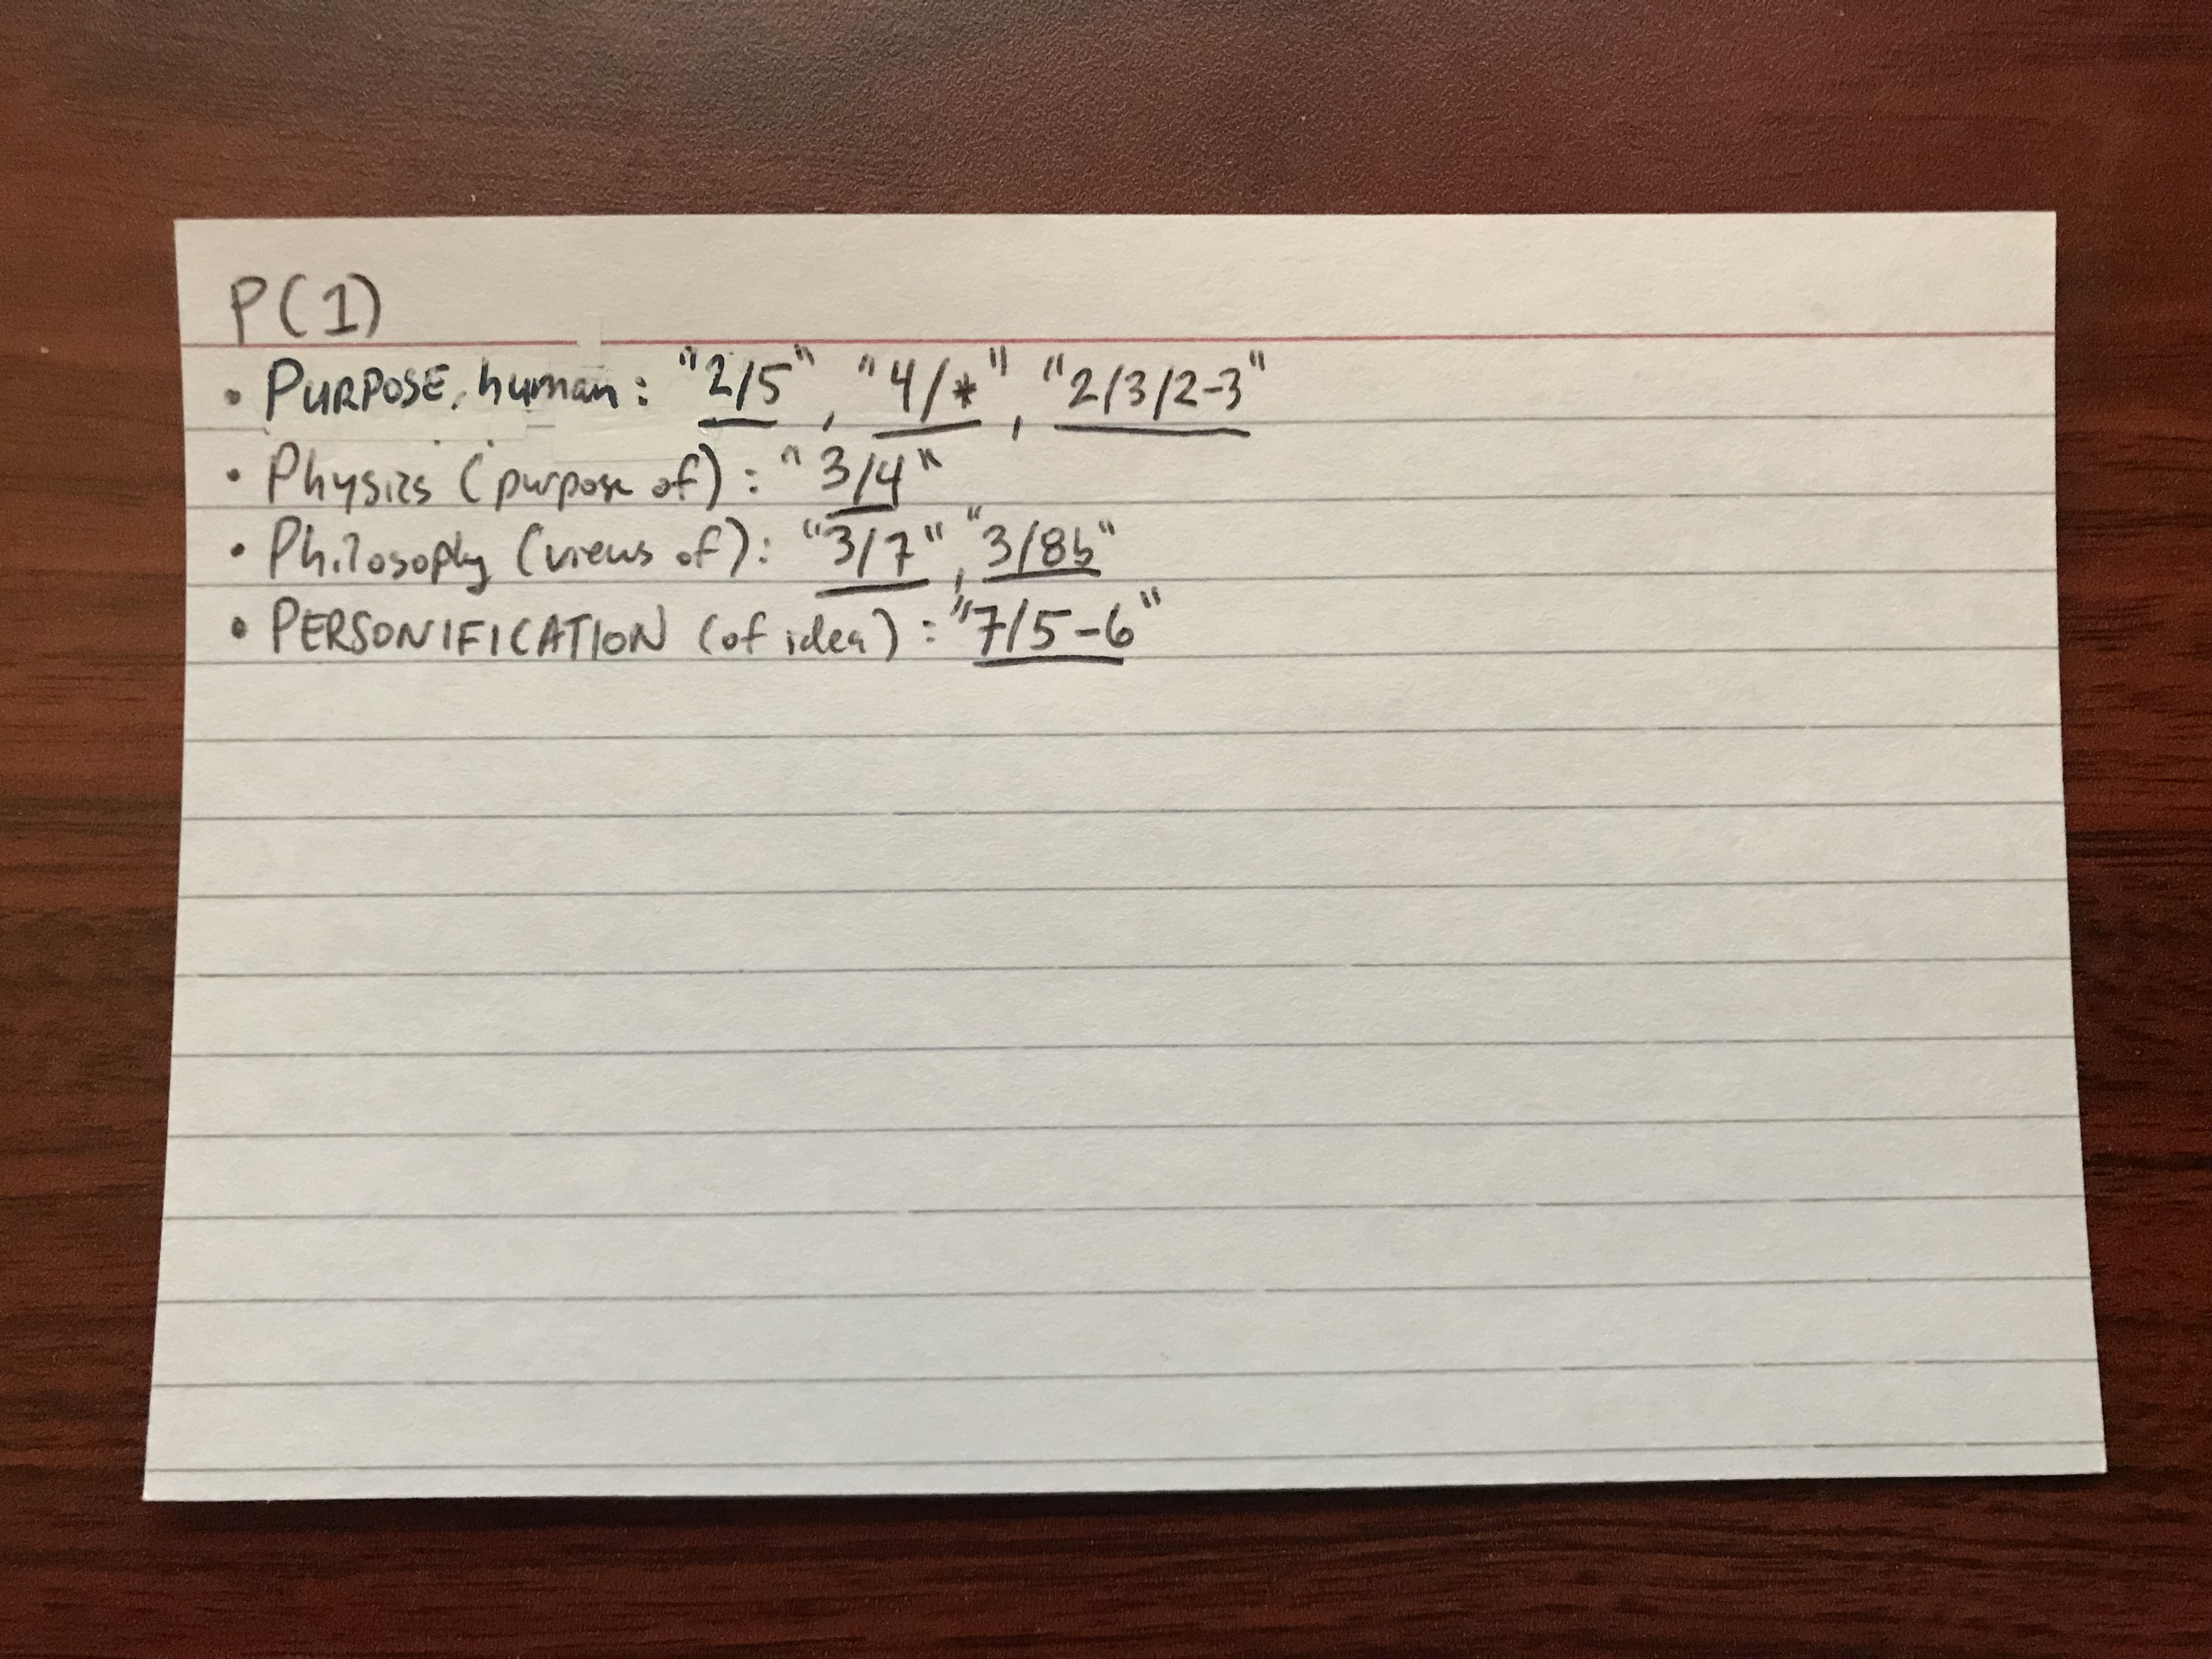 P(1)
• PURPOSE, human: "2/5", "4/*", "2/3/2-3"
• Physics (purpose of): "3/4"
• Philosophy (views of): "3/7", "3/8b"
• PERSONIFICATION (of idea): "7/5-6"